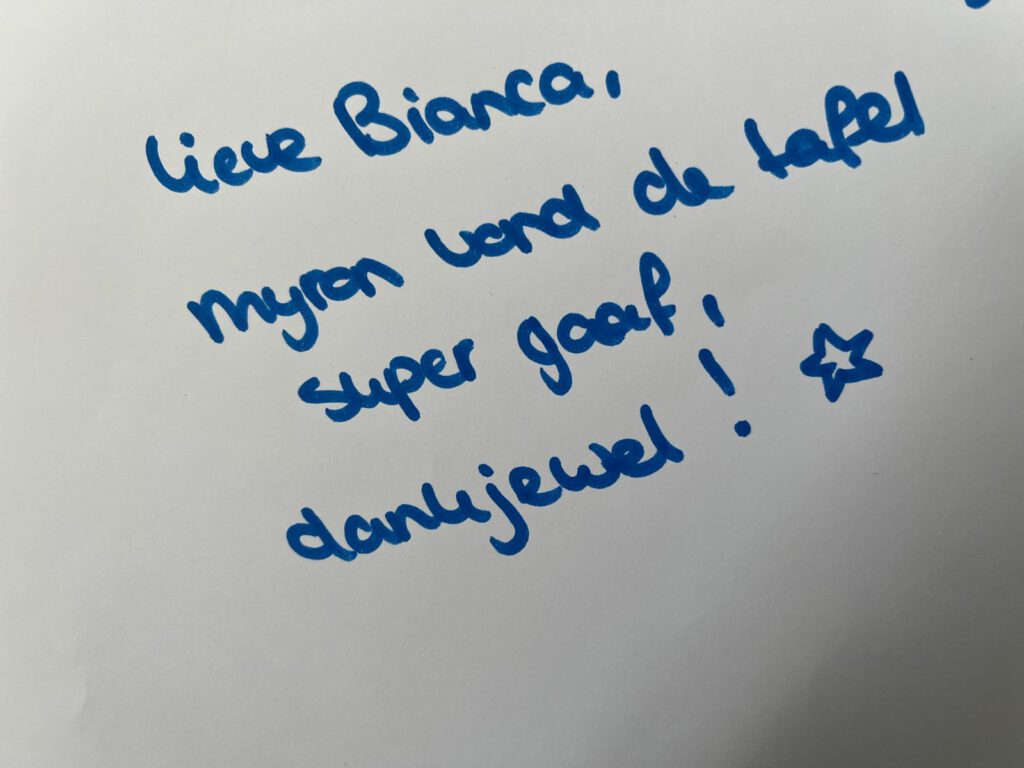 lieve Bianca,
myron vond de tafel
super gaaf,
dankjewel!